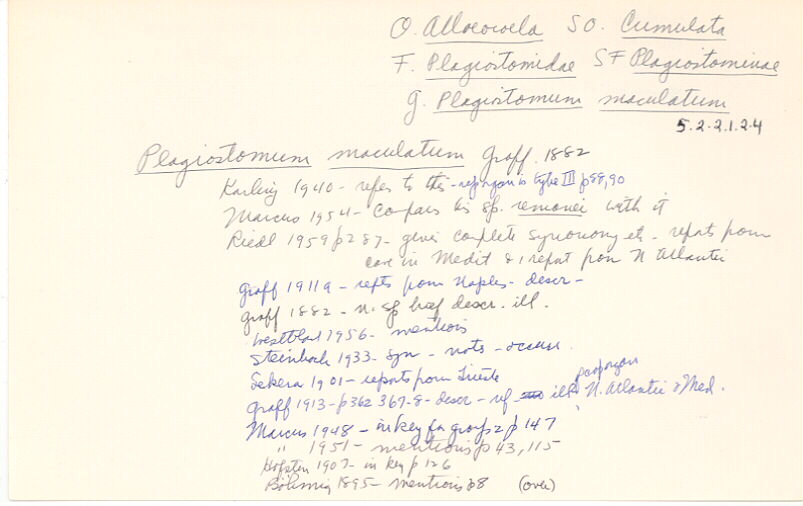 O. Alloeocoela SO. Cumulata
F. Plagiostomidae SF Plagiostominae
g. Plagiostomum maculatum
5.2.2.1.2.4
Plagiostomum maculatum Graff, 1882
Karling 1940 - refers to this - rep organ is type III p 88, 90
Marcus 1954 - compares his sp. remanei with it
Riedl 1959 p 287 - gives complete synonomy etc - reports from
cave in Medit & 1 report from N Atlantic
Graff 1911a - repts from Naples - descr -
Graff 1882 - n. sp brief descr. ill.
Westblad 1956 - mentions
Steinbock 1933 - syn - notes - occurr.
Sekera 1901 - reports from Trieste
Graff 1913 - p 362 367-8 - descr - ref ill N. Atlantic & Med.
Marcus 1948 - in key for group 2 p 147
" 1951 - mentions p 43, 115
Hofsten 1907 - in key p 126
Böhmig 1895 - mentions p 8 (over)